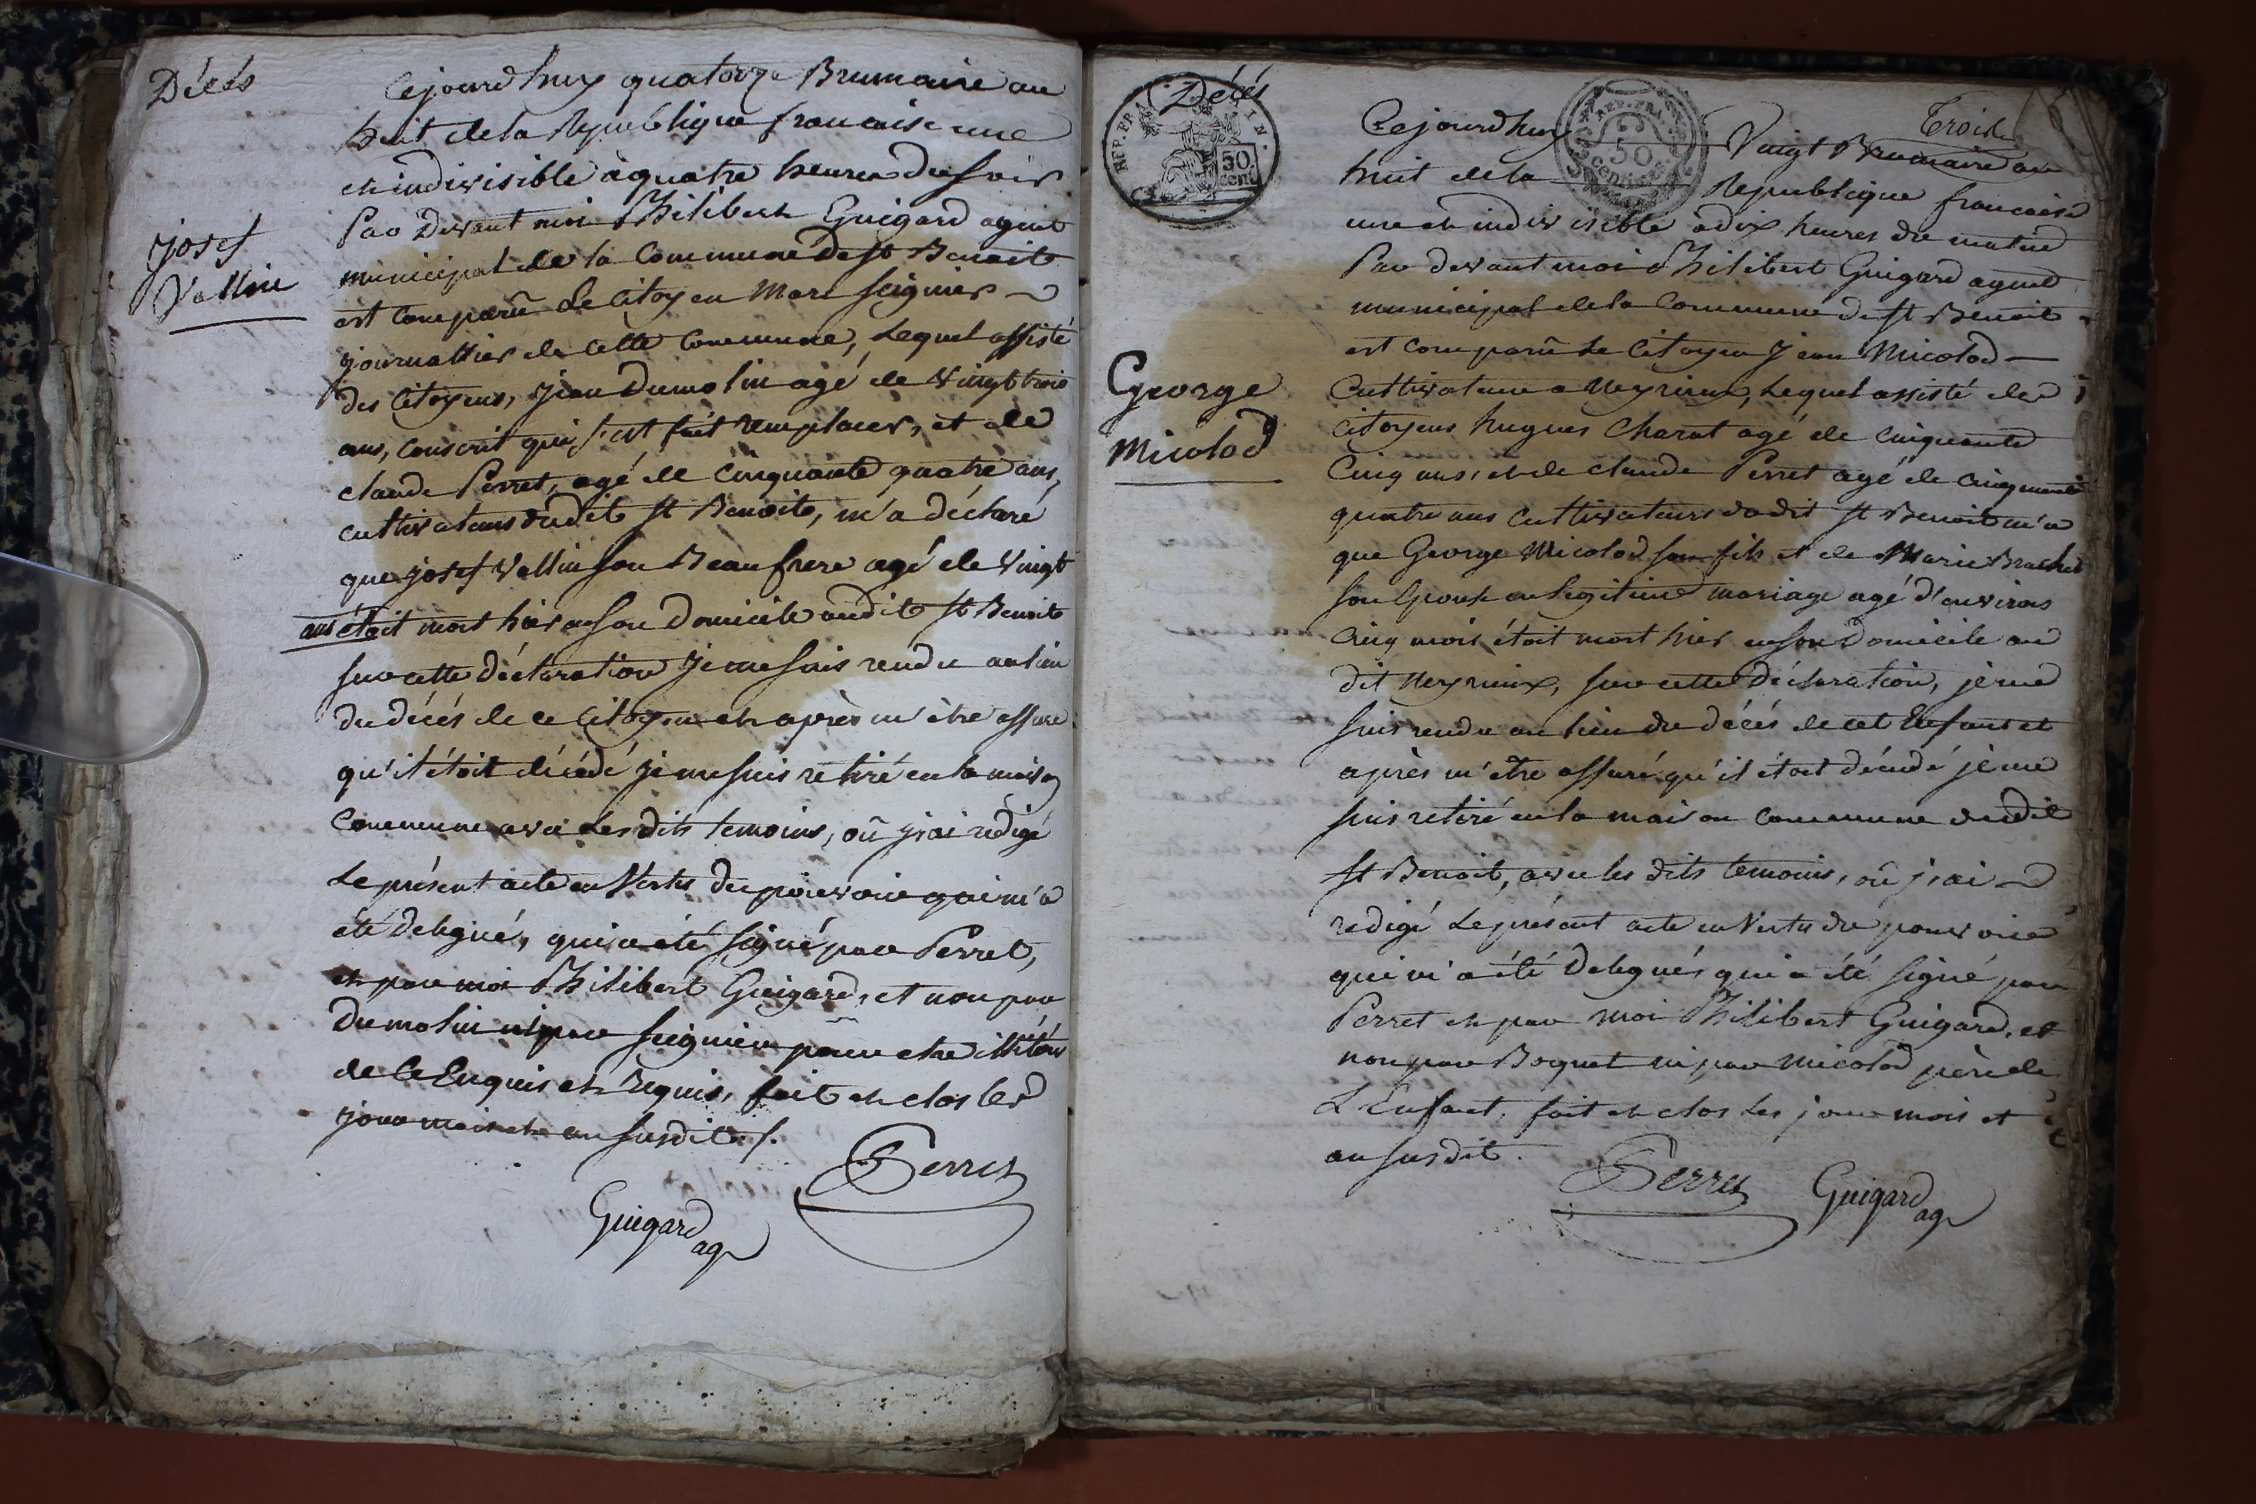 Décés
Josef
Vallin
Cejourd'huy quatorze Brumaire an
huit de la Republique francaise une
et indivisible à quatre heures du soir
Par devant moi Philibert Guigard agent
municipal de la Commune de St Benoit
est comparû Le Citoyen Marc Seignier
journallier de cette Commune, Lequel assisté
des Citoyens, Jean Dumolin agé de vingt trois
ans, conscrit qui s'est fait remplacer, et de
claude Perret, agé de cinquante quatre ans,
cultivateurs dudit St Benoit, m'a déclaré
que Josef Vallin son Beaufrere agé de vingt
ans étoit mort hier en son Domicile audit St Benoit
sur cette déclaration Je me suis rendu au lieu
du décés de ce Citoyen et après m'être assuré
qu'il étoit décédé je me suis retiré en la maison
Commune avec Les dits temoins, où j'ai redigé
Le présent acte en Vertu du pouvoir qui m'a
été délegué, qui a été signé par Perret,
et par moi Philibert Guigard, et non par
Dumolin ni par Seignier pour etre illitérés
de ce Enquis et Requis, fait et clos les
jour mois et an susdits /.
Perret
Guigard
ag
Décés
REP. FRA.
50.
cent.
REP. FRA.
50
centimes
Trois
George
Micolod
Cejourd'huy Vingt Brumaire an
huit de la Republique francaise
une et indivisible à dix heures du matin
Par devant moi Philibert Guigard agent
municipal de la Commune de St Benoit
est comparû Le Citoyen Jean Micolod
Cultivateur a Meyrieux, Lequel assisté des
Citoyens hugues Charat agé de cinquante
Cinq ans, et de claude Perret agé de cinquante
quatre ans cultivateurs dudit St Benoit m'a
que George Micolod son fils et de Marie Brachet
son Epouse en légitime mariage agé d'environ
Cinq mois étoit mort hier en son Domicile au
dit Meyrieux, sur cette déclaration, je me
suis rendu au lieu du décés de cet Enfant et
après m'être assuré qu'il étoit décédé je me
suis retiré en la maison Commune dudit
St Benoit, avec les dits temoins, où j'ai
redigé Le présent acte en Vertu du pouvoir
qui m'a été délegué, qui a été signé par
Perret et par moi Philibert Guigard, et
non par Boquet ni par Micolod père de
L'Enfant, fait et clos Les jour mois et
an susdit.
Perret
Guigard
ag